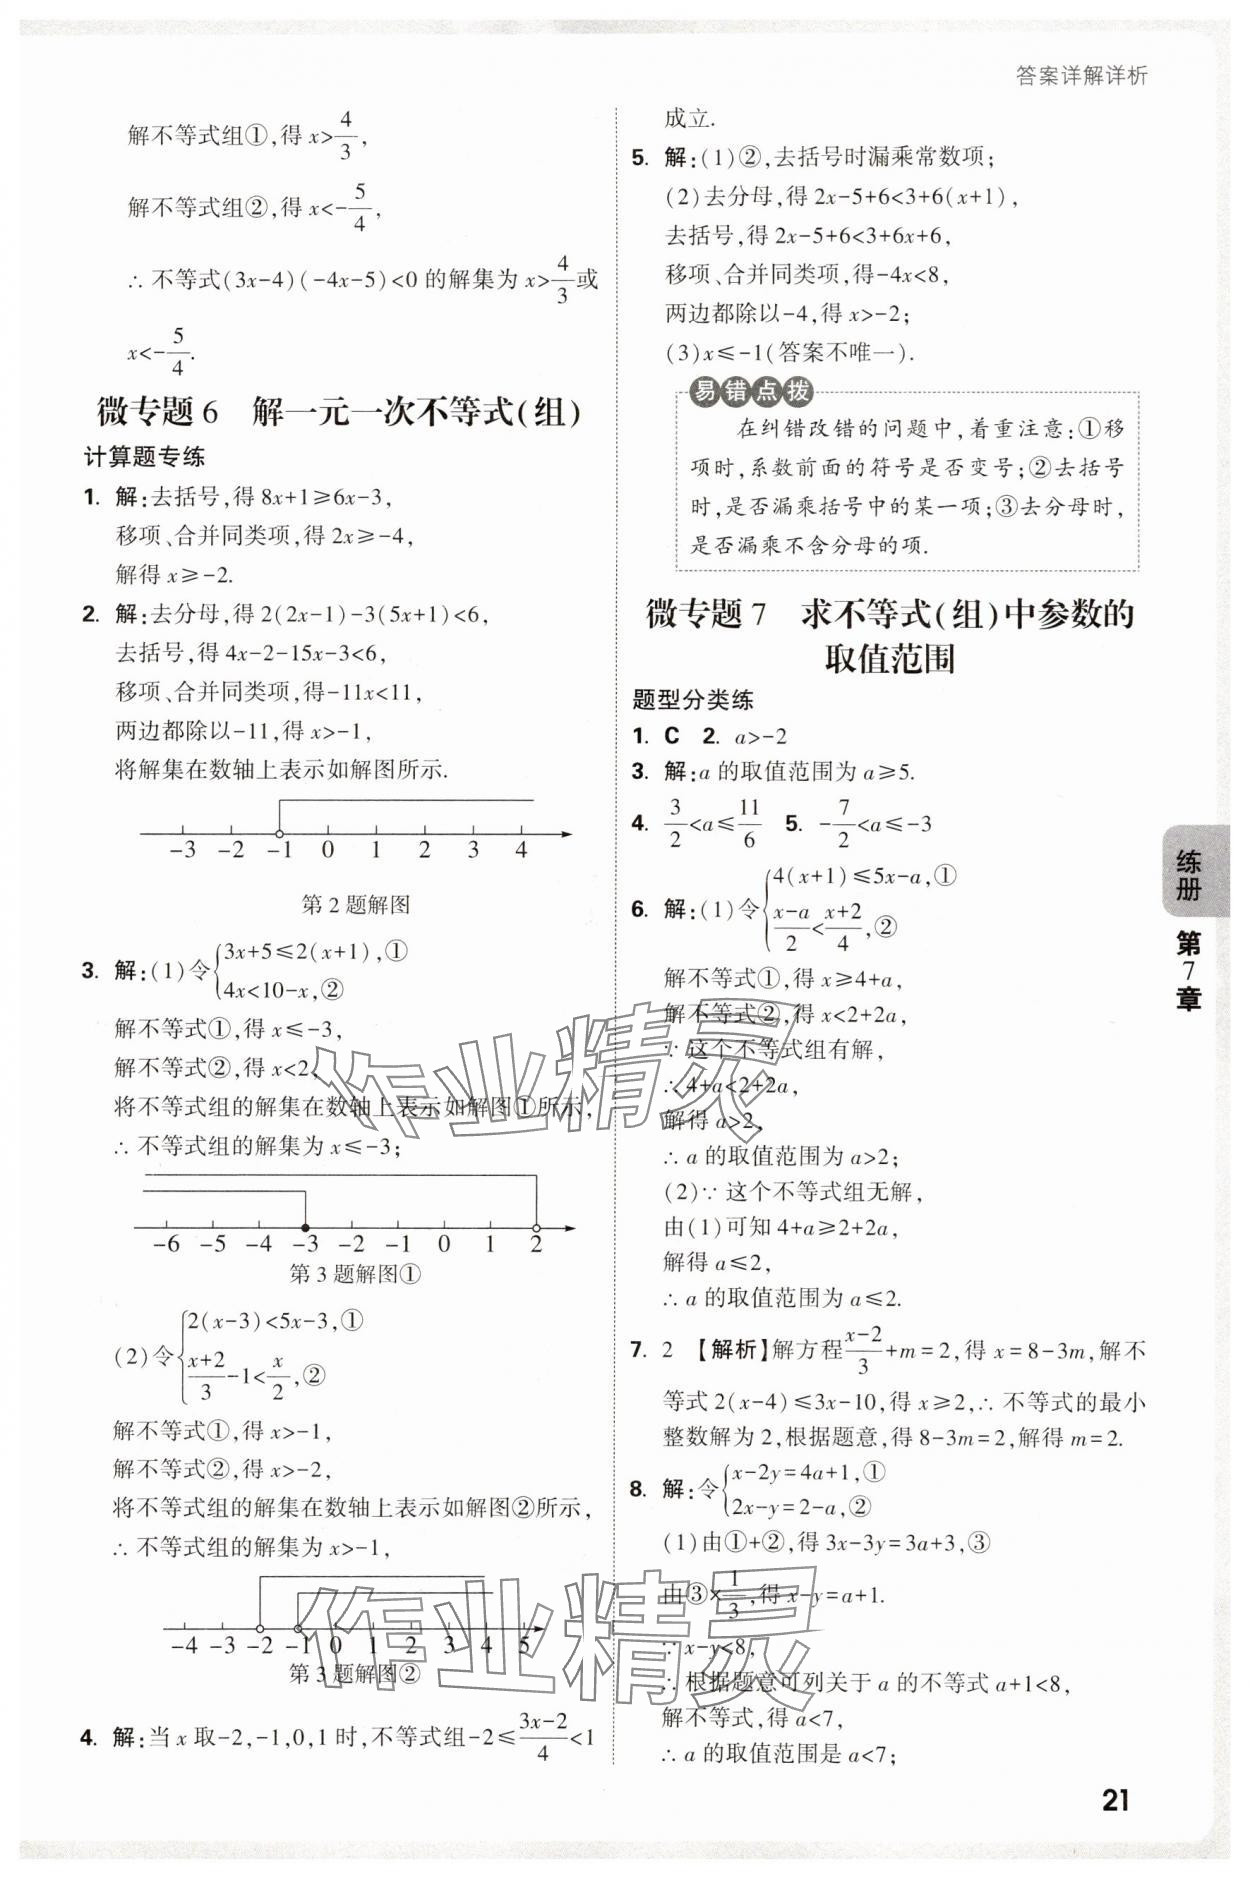 答案详解详析
解不等式组①,得 x>4/3,
解不等式组②,得 x<-5/4,
∴ 不等式(3x-4)(-4x-5)<0 的解集为 x>4/3或
x<-5/4.
微专题 6　解一元一次不等式(组)
计算题专练
1. 解:去括号,得 8x+1≥6x-3,
移项、合并同类项,得 2x≥-4,
解得 x≥-2.
2. 解:去分母,得 2(2x-1)-3(5x+1)<6,
去括号,得 4x-2-15x-3<6,
移项、合并同类项,得-11x<11,
两边都除以-11,得 x>-1,
将解集在数轴上表示如解图所示.
-3 -2 -1 0 1 2 3 4
第 2 题解图
3. 解:(1)令{3x+5≤2(x+1),①
4x<10-x,②
解不等式①,得 x≤-3,
解不等式②,得 x<2,
将不等式组的解集在数轴上表示如解图①所示,
∴ 不等式组的解集为 x≤-3;
-6 -5 -4 -3 -2 -1 0 1 2
第 3 题解图①
(2)令{2(x-3)<5x-3,①
(x+2)/3-1<x/2,②
解不等式①,得 x>-1,
解不等式②,得 x>-2,
将不等式组的解集在数轴上表示如解图②所示,
∴ 不等式组的解集为 x>-1,
-4 -3 -2 -1 0 1 2 3 4 5
第 3 题解图②
4. 解:当 x 取-2,-1,0,1 时,不等式组-2≤(3x-2)/4<1
成立.
5. 解:(1)②,去括号时漏乘常数项;
(2)去分母,得 2x-5+6<3+6(x+1),
去括号,得 2x-5+6<3+6x+6,
移项、合并同类项,得-4x<8,
两边都除以-4,得 x>-2;
(3)x≤-1(答案不唯一).
易错点拨
在纠错改错的问题中,着重注意:①移
项时,系数前面的符号是否变号;②去括号
时,是否漏乘括号中的某一项;③去分母时,
是否漏乘不含分母的项.
微专题 7　求不等式(组)中参数的
取值范围
题型分类练
1. C 2. a>-2
3. 解:a 的取值范围为 a≥5.
4. 3/2<a≤11/6 5. -7/2<a≤-3
6. 解:(1)令{4(x+1)≤5x-a,①
(x-a)/2<(x+2)/4,②
解不等式①,得 x≥4+a,
解不等式②,得 x<2+2a,
∵ 这个不等式组有解,
∴ 4+a<2+2a,
解得 a>2,
∴ a 的取值范围为 a>2;
(2)∵ 这个不等式组无解,
由(1)可知 4+a≥2+2a,
解得 a≤2,
∴ a 的取值范围为 a≤2.
7. 2 【解析】解方程(x-2)/3+m=2,得 x=8-3m,解不
等式 2(x-4)≤3x-10,得 x≥2,∴ 不等式的最小
整数解为 2,根据题意,得 8-3m=2,解得 m=2.
8. 解:令{x-2y=4a+1,①
2x-y=2-a,②
(1)由①+②,得 3x-3y=3a+3,③
由③×1/3,得 x-y=a+1.
∵ x-y<8,
∴ 根据题意可列关于 a 的不等式 a+1<8,
解不等式,得 a<7,
∴ a 的取值范围是 a<7;
练册
第7章
21
作业精灵
作业精灵